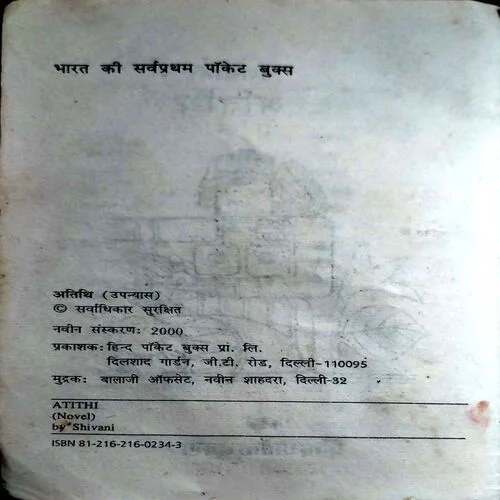 भारत की सर्वप्रथम पॉकेट बुक्स
अतिथि (उपन्यास)
© सर्वाधिकार सुरक्षित
नवीन संस्करण: 2000
प्रकाशक: हिन्द पॉकेट बुक्स प्रां. लि.
दिलशाद गार्डन, जी.टी. रोड, दिल्ली-110095
मुद्रक: बालाजी ऑफसेट, नवीन शाहदरा, दिल्ली-32
ATITHI
(Novel)
by Shivani
ISBN 81-216-216-0234-3